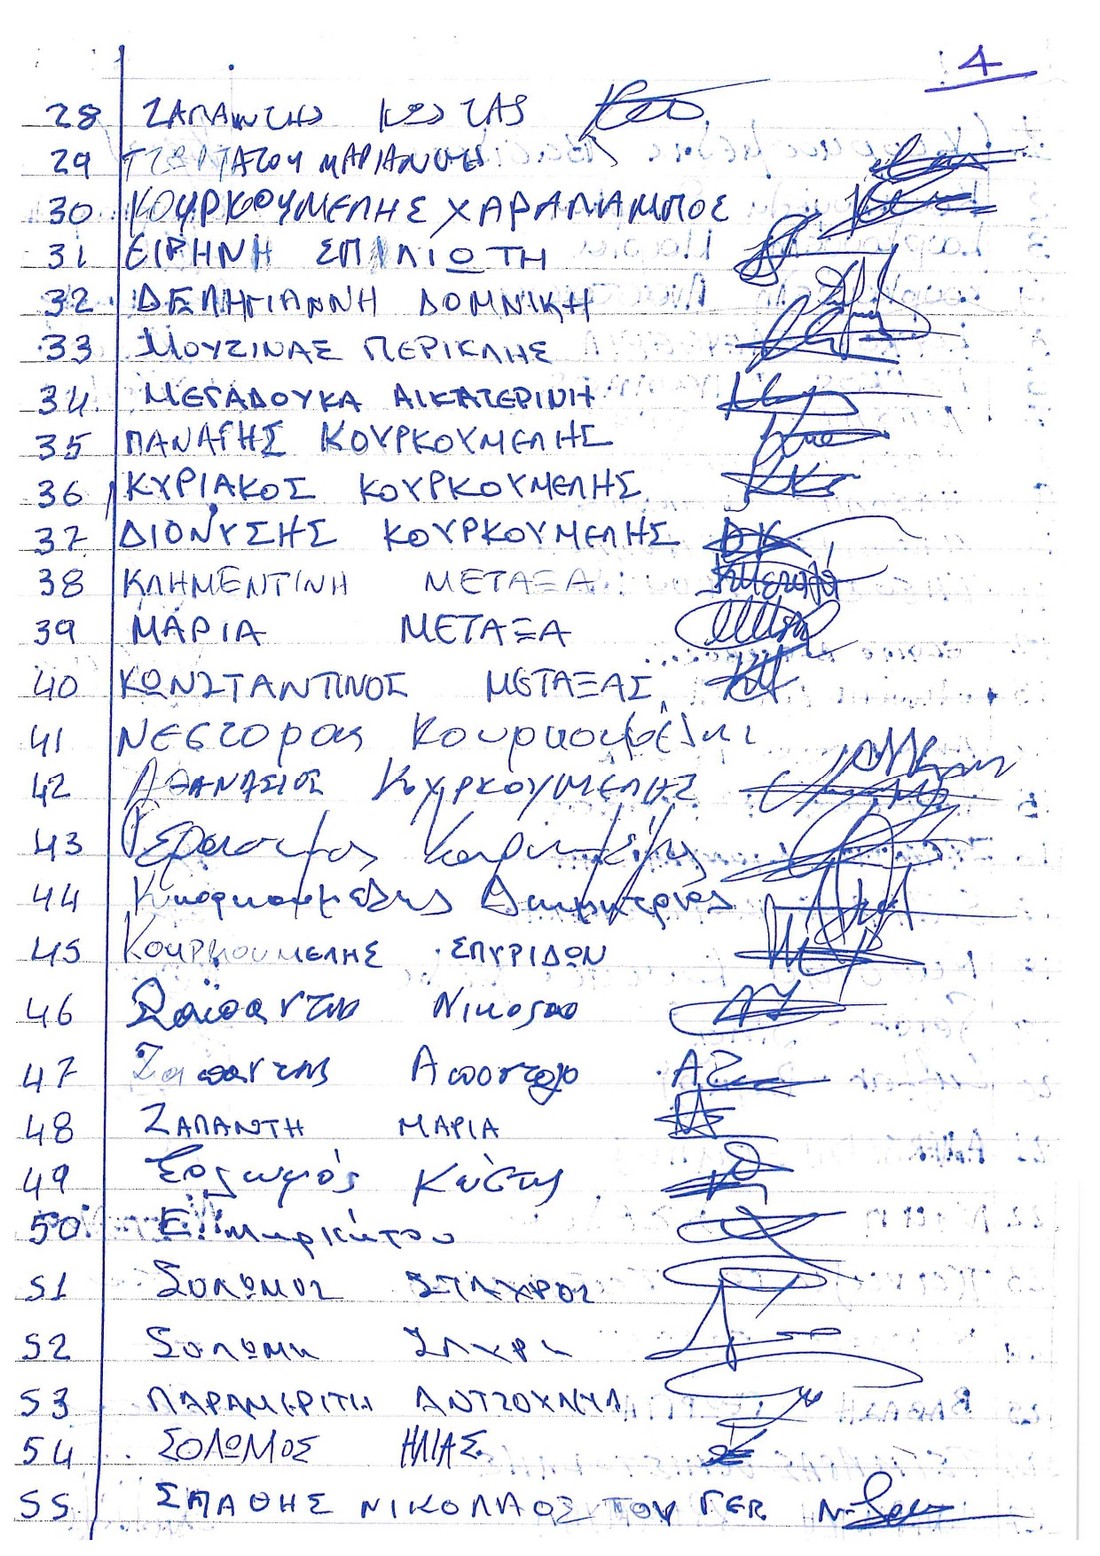 4
28 ΖΑΠΑΝΤΗΣ ΚΩΣΤΑΣ
29 ΜΑΡΙΑΝΘΗ
30 ΚΟΥΡΚΟΥΜΕΛΗΣ ΧΑΡΑΛΑΜΠΟΣ
31 ΕΙΡΗΝΗ ΣΠΙΛΙΩΤΗ
32 ΔΕΛΗΓΙΑΝΝΗ ΔΟΜΝΙΚΗ
33 ΜΟΥΖΙΝΑΣ ΠΕΡΙΚΛΗΣ
34 ΜΕΓΑΔΟΥΚΑ ΑΙΚΑΤΕΡΙΝΗ
35 ΠΑΝΑΓΗΣ ΚΟΥΡΚΟΥΜΕΛΗΣ
36 ΚΥΡΙΑΚΟΣ ΚΟΥΡΚΟΥΜΕΛΗΣ
37 ΔΙΟΝΥΣΗΣ ΚΟΥΡΚΟΥΜΕΛΗΣ ΔΚ
38 ΚΛΗΜΕΝΤΙΝΗ ΜΕΤΑΞΑ ΚΜεταξά
39 ΜΑΡΙΑ ΜΕΤΑΞΑ
40 ΚΩΝΣΤΑΝΤΙΝΟΣ ΜΕΤΑΞΑΣ ΚΜ
41 Νεστορας Κουρκουμέλης
42 ΑΘΑΝΑΣΙΟΣ ΚΟΥΡΚΟΥΜΕΛΗΣ
43 Γερασιμος
44 Κουρκουμελης Δημητριος
45 ΚΟΥΡΚΟΥΜΕΛΗΣ ΣΠΥΡΙΔΩΝ
46 Νικολαο
47 Ζαπαντης Αποστολο ΑΖ
48 ΖΑΠΑΝΤΗ ΜΑΡΙΑ
49 Σολωμός Κώστας
50
51 ΣΟΛΩΜΟΣ ΣΤΑΥΡΟΣ
52 ΣΟΛΩΜΗ
53
54 ΣΟΛΩΜΟΣ ΗΛΙΑΣ
55 ΣΠΑΘΗΣ ΝΙΚΟΛΑΟΣ ΤΟΥ ΓΕΡ